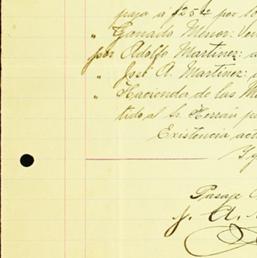 pago a $254 por lo
" Ganado Menor: Ven
por Adolfo Martinez: a
" José A. Martinez:
" Hacienda de las M
tido al Sr. Herran p
Existencia act
Ig
Pasaje
J. A.